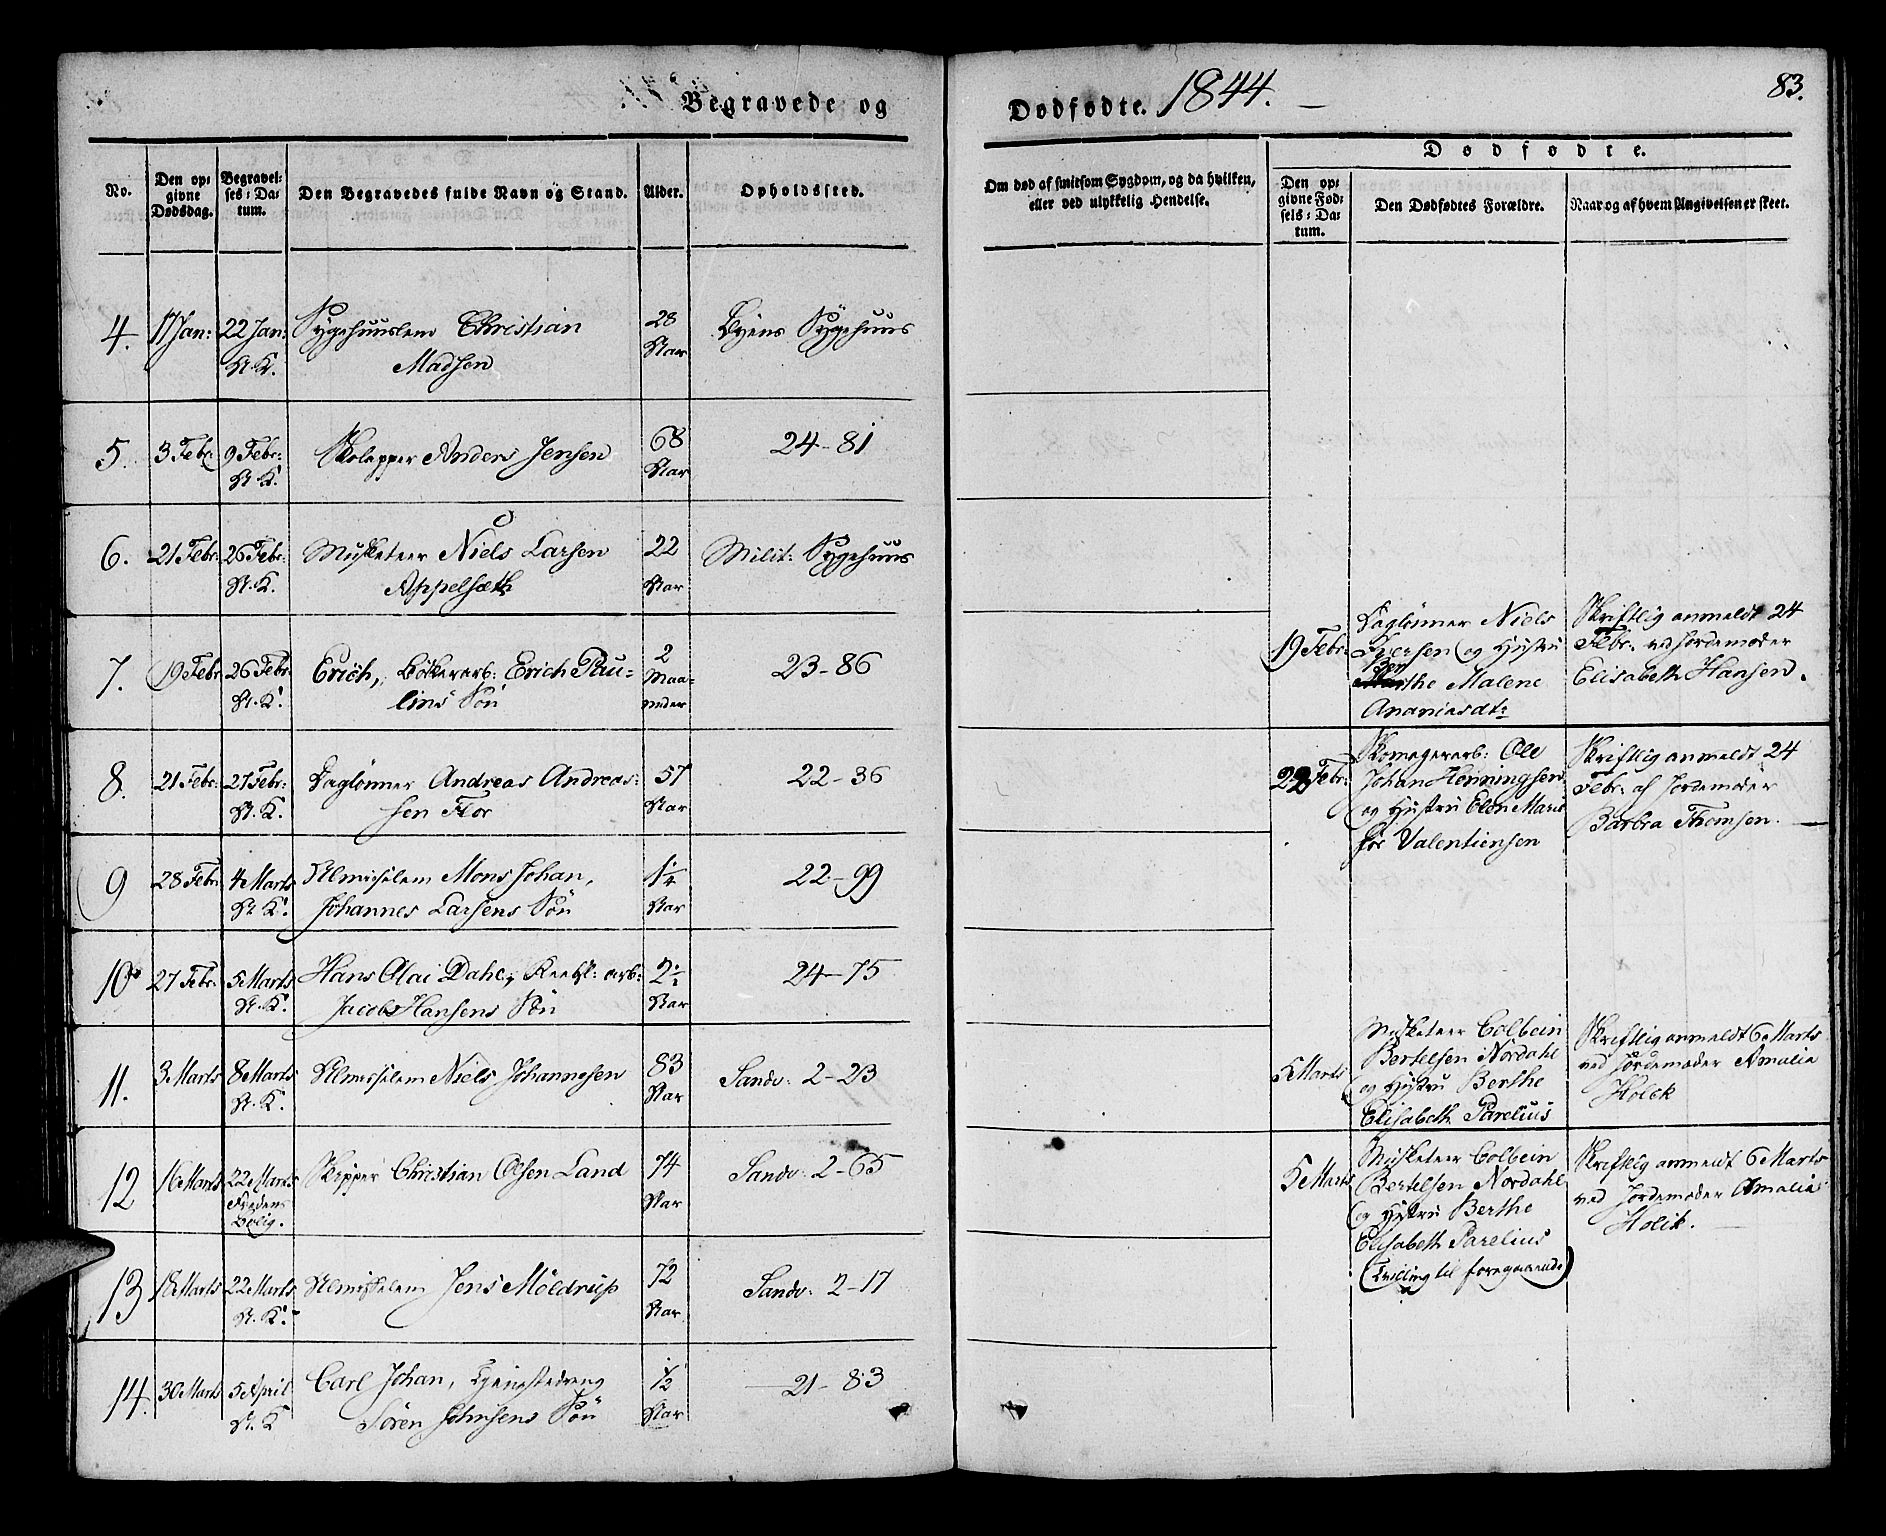 Begravede og
Dødfødte. 1844.
83.
No.
Den op-
givne
Dødsdag.
Begravel-
ses-Da-
tum.
Den Begravedes fulde Navn og Stand.
Alder.
Opholdssted.
Om død af smitsom Sygdom, og da hvilken,
eller ved ulykkelig Hendelse.
Dødfødte.
Den op-
givne Fød-
sels-Da-
tum.
Den Dødfødtes Forældre.
Naar og af hvem Angivelsen er skeet.
4. 17 Jan: 22 Jan: Sygehuuslem Christian 28 Byens Sygehuus
St. K. Madsen Aar
5. 3 Febr: 9 Febr: Anders Jensen 68 24-81
St. K. Aar
6. 21 Febr: 26 Febr: Musketeer Niels Larsen 22 Milit: Sygehuus
St. K. Appelsæth Aar
7. 19 Febr: 26 Febr: Erich, Bökkerarb: Erich Pau- 2 23-86
St. K. lins Sön Maa-
neder
8. 21 Febr: 27 Febr: Daglönner Andreas Andreas- 57 22-36
St. K. sen Flor Aar
9 28 Febr: 4 Marts Almisselem Mons Johan, 1¼ 22-99
St. K. Johannes Larsens Sön Aar
10 27 Febr: 5 Marts Hans Olai Dahl, arb: 24-75
St. K. Jacob Hansens Sön Aar
11. 3 Marts 8 Marts Almisselem Niels Johannesen 83 Sandv: 2-23
St. K. Aar
12 16 Marts 22 Marts Skipper Christian Olsen Land 74 Sandv: 2-65
Fredens Aar
Bolig.
13 18 Marts 22 Marts Almisselem Jens Möldrup 72 Sandv: 2-17
St. K. Aar
14. 30 Marts 5 April Carl Johan, Tjenestedreng ½ 21-83
St. K Sören Johnsens Sön Aar
19 Febr: Daglönner Niels
Iversen og Hustru
Ber
the Malene
Ananiasdtr
Skriftlig anmeldt 24
Febr: ved Jordemoder
Elisabeth Hansen.
22 Febr: Skomagerarb: Ole
Johan Henningsen
og Hustru Elen Marie
för Valentiensen
Skriftlig anmeldt 24
Febr: af Jordemoder
Barbra Thomsen.
5 Marts Musketeer Colbein
Bertelsen Nordahl
og Hustru Berthe
Elisabeth Parelius
Skriftlig anmeldt 6 Marts
ved Jordemoder Amalia
Holck
5 Marts Musketeer Colbein
Bertelsen Nordahl
og Hustru Berthe
Elisabeth Parelius
(Tvilling til foregaaende)
Skriftlig anmeldt 6 Marts
ved Jordemoder Amalia
Holck.